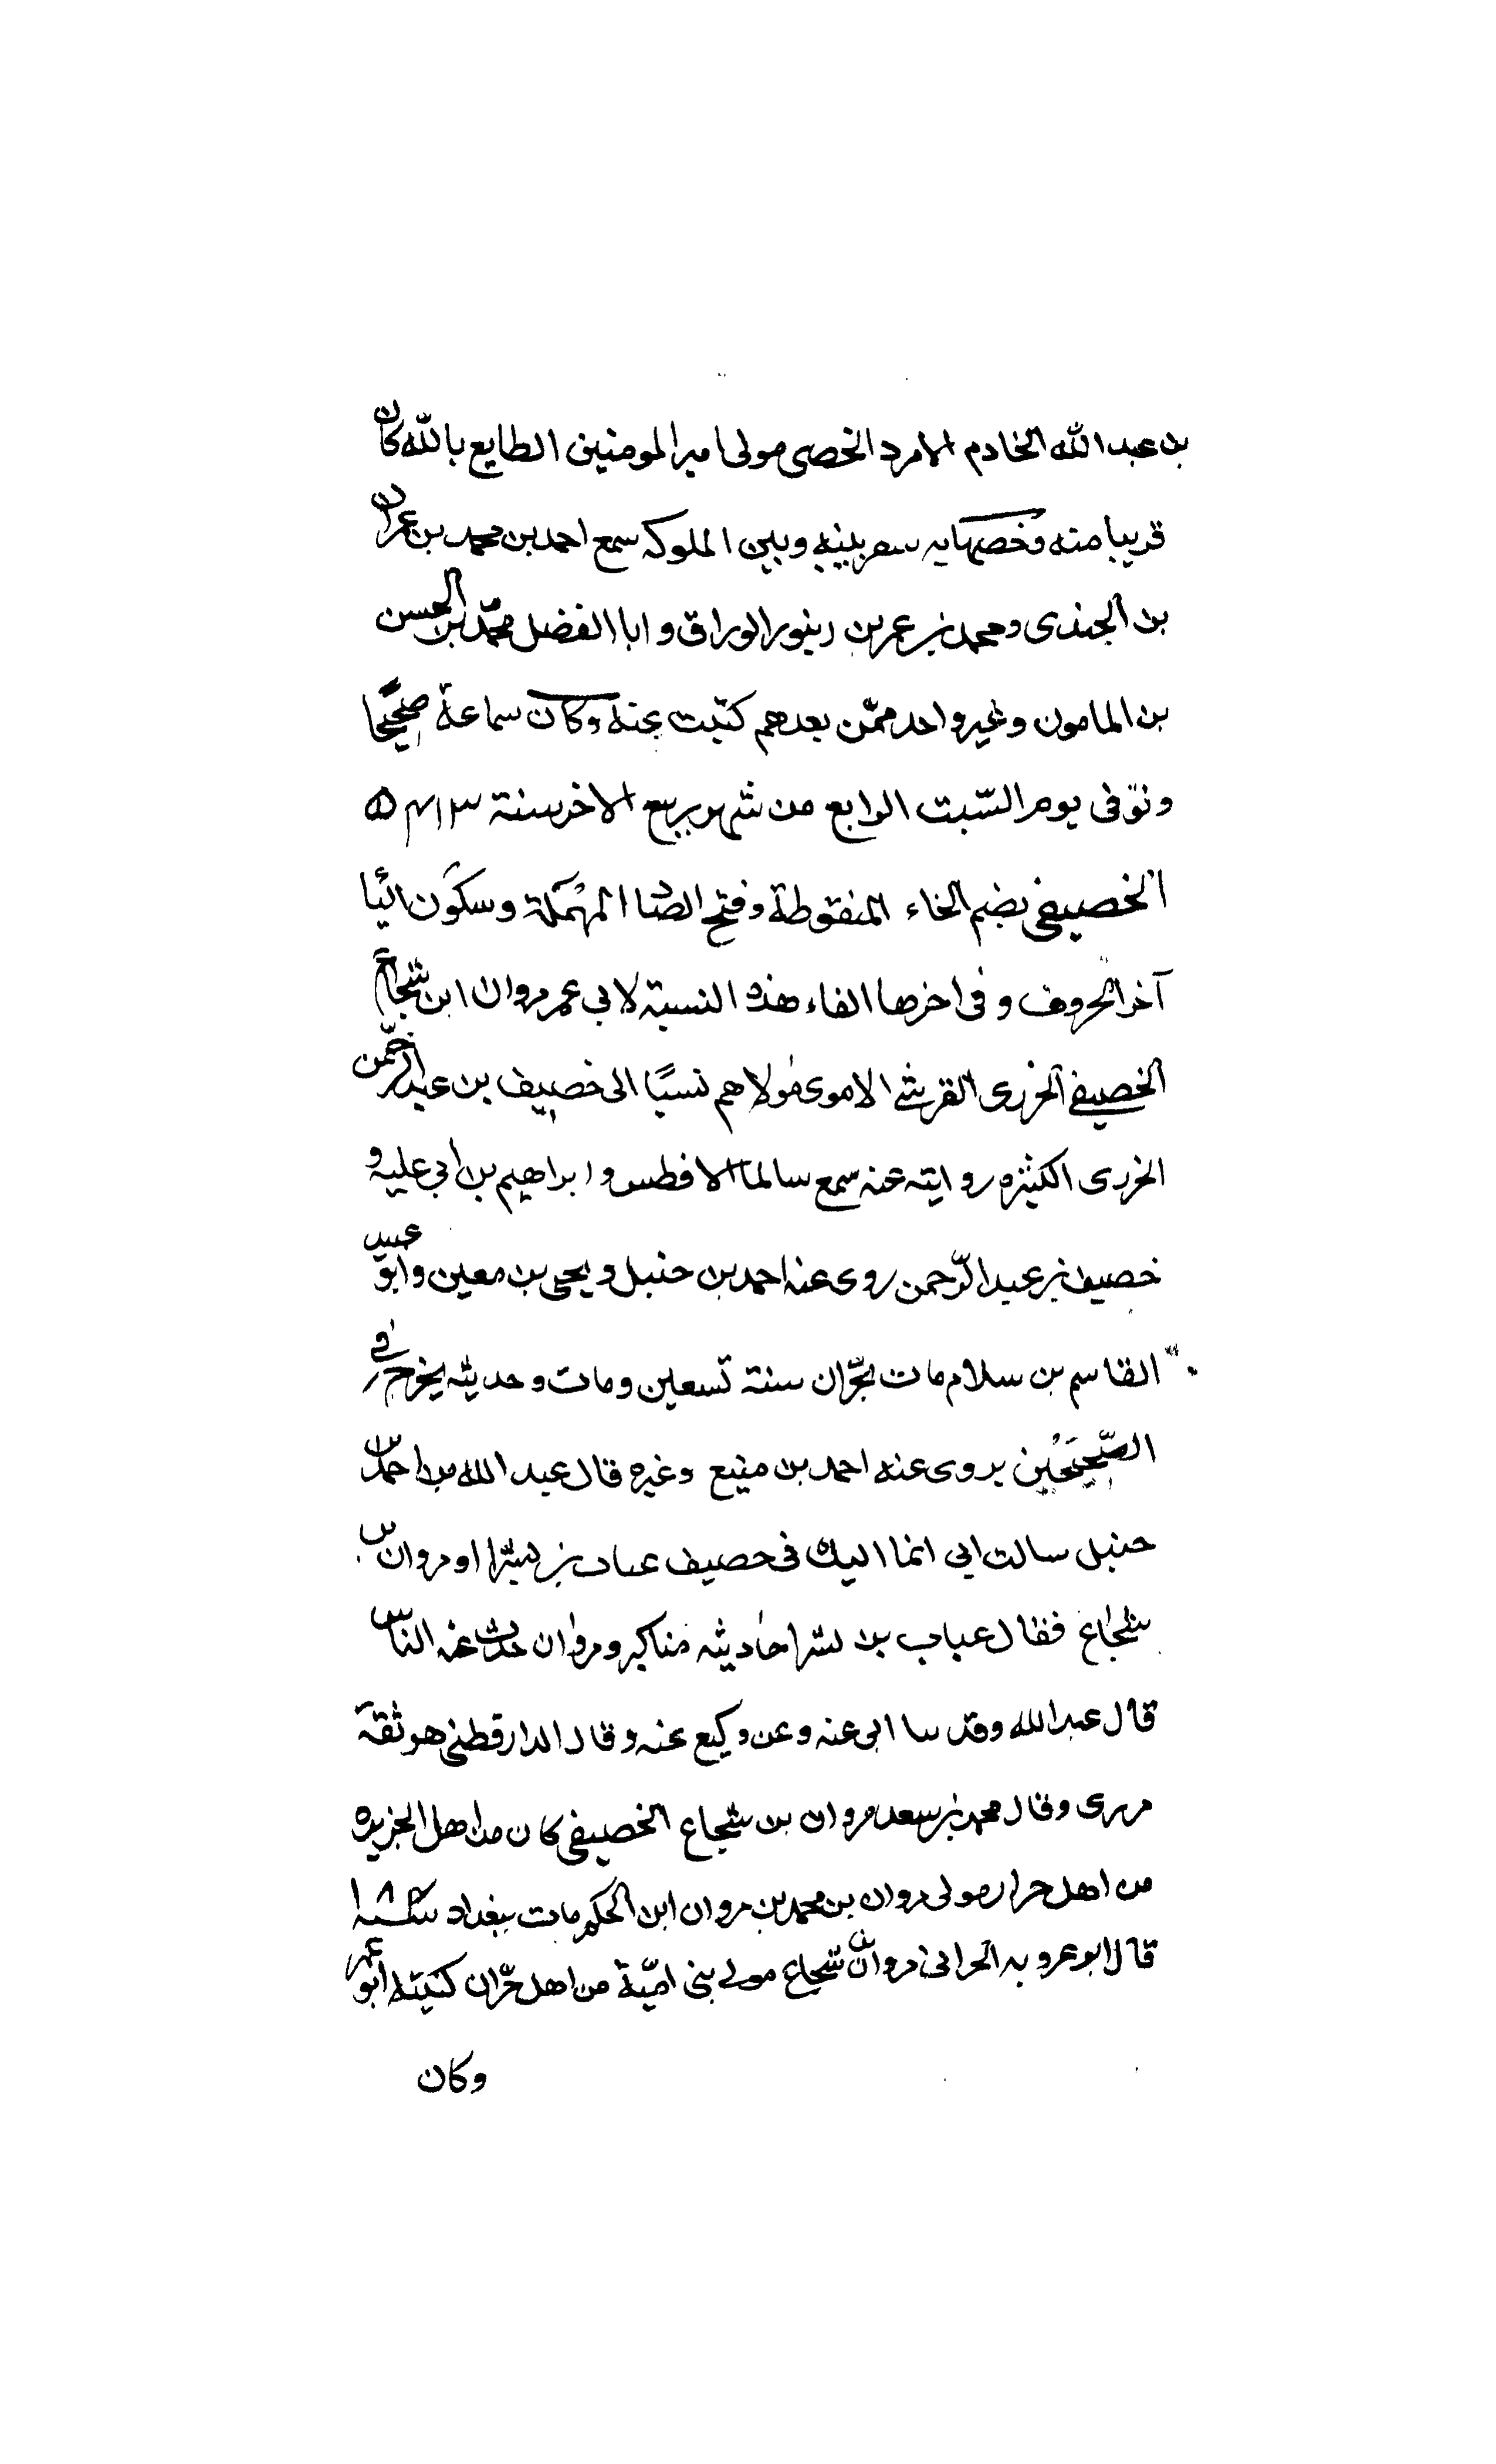 بن عبد الله الخادم الامرد الخصى مولى امير المومنين الطايع بالله كان
قريبا منه وخصيصابه سفر بينه وبين الملوك سمع احمد بن محمد بن عمران
بن الجندى ومحمد بن عمر بن دينور الوراق وابا الفضل محمّد بن الحسن
بن المامون وغير واحد ممّن بعدهم كتبت عنه وكان سماعه صحيحًا
وتوّفى يوم السّبت الرابع من شهر ربيع الاخر سنة ٤١٣ ه
الخصيفى بضم الخاء المنقوطة وفتح الصاد المهملة وسكون اليا
آخر الحروف وفى اخرها الفاء هذه النسبة لابي عمر مروان ابن شجاع
الخصيفى الخزرى القرشى الاموى مولاهم نسبًا الى خصيف بن عبد الرحمن
الخررى الكثره روايته عنه سمع سالما الافطس وابراهيم بن ابى عليه و
خصيف بن عبد الرّحمن روى عنه احمد بن حنبل ويحيى بن معين وابو عبيد
القاسم بن سلام مات بحرّان سنة تسعين ومات وحديثه يخرج فى
الصّحيحَيْن يروى عنه احمد بن منيع وغيره قال عبد الله بن احمد بن
حنبل سالت ابى انما اليك فى حصيف عتاب بن بشر او مروان بن
شجاع فقال عباب بن بشر احاديثه مناكير ومروان حدث عنه الناس
قال عبد الله وقد سا ابى عنه وعن وكيع عنه وقال الدارقطنى هو ثقة
مررى وقال محمد بن سعد مروان بن شجاع الخصيفى كان من اهل الجزيره
من اهل حرار مولى مروان بن محمد بن مروان ابن الحكم مات ببغداد سنة ١٨٤
قال ابو عروبه الحرانى مروان بن شجاع مولى بنى اميّة من اهل حرّان كنيته ابو عمر
وكان